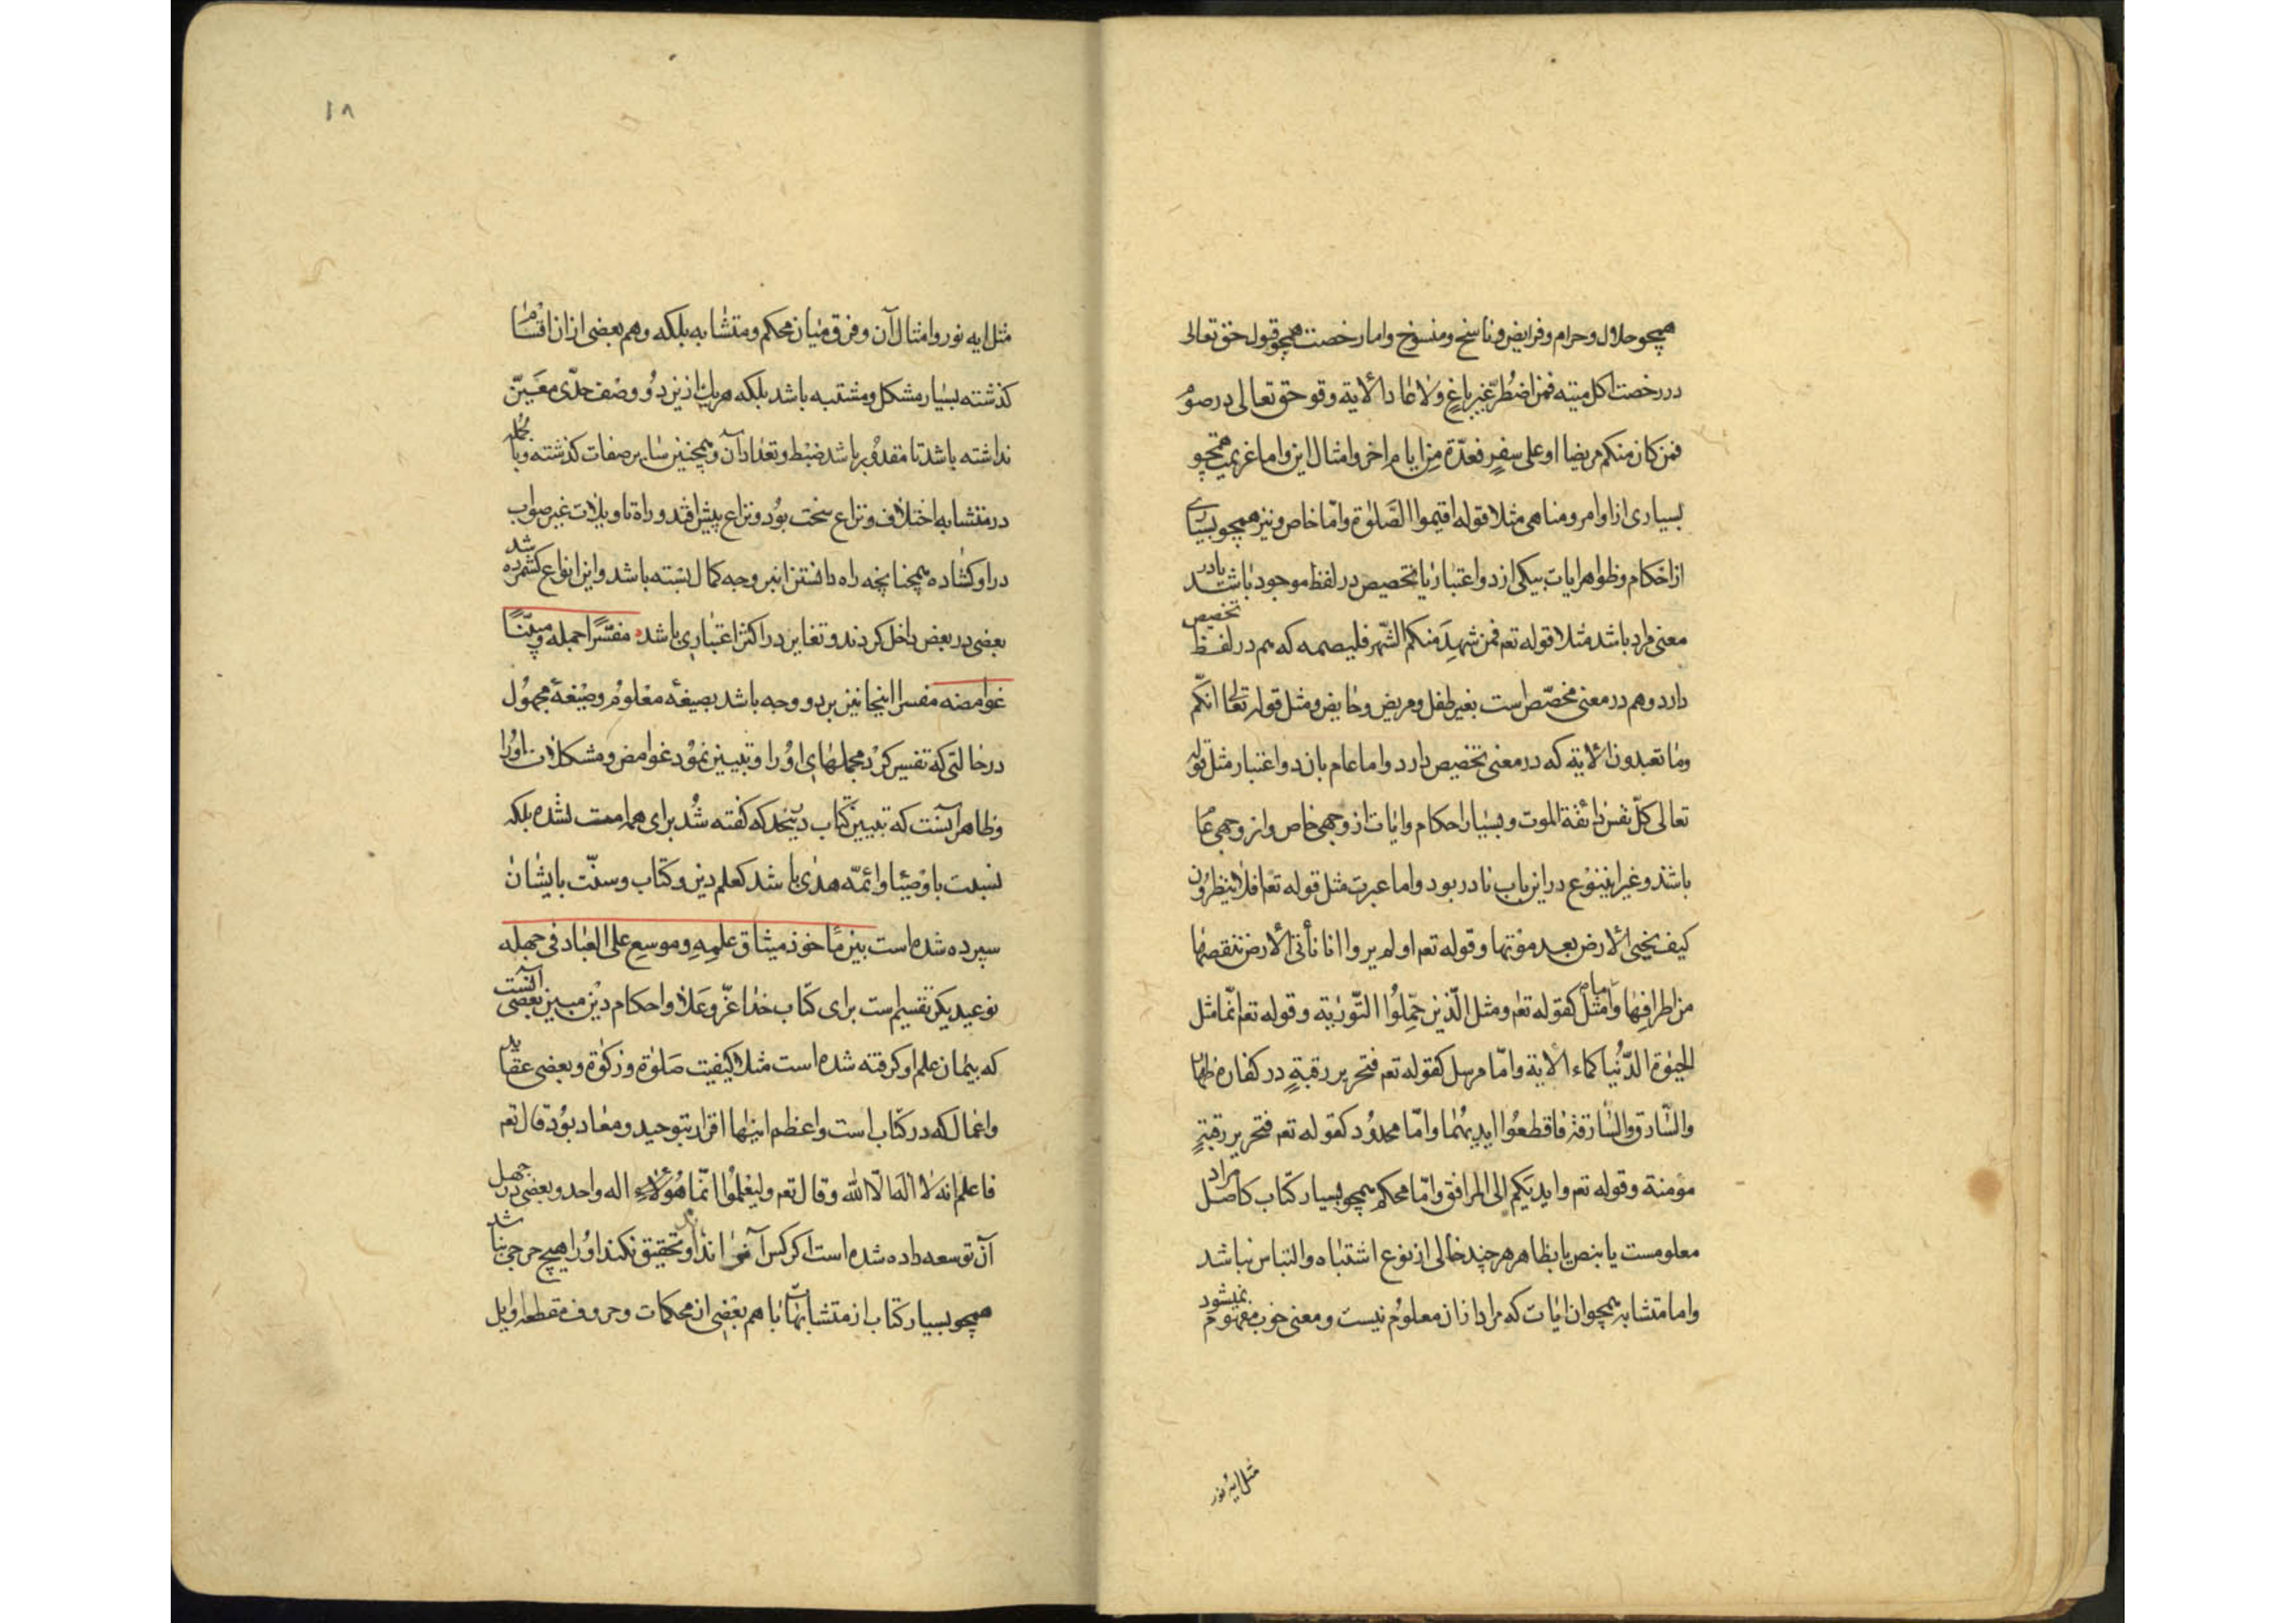 همچو حلال و حرام و فرایض و ناسخ و منسوخ و اما رخصت همچو قول حق تعالی
در رخصت اکل میته فمن اضطرّ غیر باغٍ ولا عاد الآیة وقو حق تعالی در صوم
فمن کان منکم مریضا او علی سفرٍ فعدّة من ایام اخر و امثال این و اما عزیمت همچو
بسیاری از اوامر و مناهی مثلا قوله اقیموا الصّلوٰة و امّا خاص و نیز همچو بسیاری
از احکام و ظواهر ایات بیکی از دو اعتبار یا تخصیص در لفظ موجود باشد یا در
معنی مراد باشد مثلا قوله تعم فمن شهد منکم الشّهر فلیصمه که هم در لفظ تخصیص
دارد و هم در معنی مخصّص است بغیر طفل و مریض و حایض و مثل قوله تعالی انّکم
وما تعبدون الآیة که در معنی تخصیص دارد و اما عام بان دو اعتبار مثل قوله
تعالی کلّ نفس ذائقة الموت و بسیار احکام و ایات از وجهی خاص و از وجهی عام
باشد و غیر اینوع در این باب نادر بود و اما عبرت مثل قوله تعم افلا ینظرون
کیف یحیی الارض بعد موتها و قوله تعم اولم یروا انا نأتی الارض ننقصها
من اطرافها و اما مثل کقوله تعم و مثل الّذین حمّلوا التّوریة و قوله تعم انّما مثل
الحیٰوة الدّنیا کماء الآیة و امّا مرسل کقوله تعم فتحریر رقبةٍ در کفاره ظهار
والسّارق والسّارقة فاقطعوا ایدیهما و امّا محدود کقوله تعم فتحریر رقبةٍ
مؤمنة و قوله تعم و ایدیکم الی المرافق و امّا محکم همچو بسیار کتاب کاصل مراد
معلومست یا بنص یا بظاهر هر چند خالی از نوع اشتباه و التباس نباشد
و اما متشابه همچو ان ایات که مراد از ان معلوم نیست و معنی خوب مفهوم نمیشود
مثل ایه نور
۱۸
مثل ایه نور و امثال آن و فرق میان محکم و متشابه بلکه و هم بعضی از ان اقسام
کذشته بسیار مشکل و مشتبه باشد بلکه هر یک از این دو وصف حدّی معیّن
نداشته باشد تا مقدور باشد ضبط و تعداد آن و همچنین سایر صفات کذشته
در متشابه اختلاف و نزاع سخت بود و نزاع پیش افتد و راه تاویلات غیر صواب
در او کشاده همچنانچه راه دانستن این بر وجه کمال بسته باشد و این انواع که شمرده شد
بعضی در بعض داخل کردند و تغایر در اکثر اعتباری باشد مفسّرا جمله و مبیّنًا
غوامضه مفسرا اینجا نیز بر دو وجه باشد بصیغه معلوم و صیغهٔ مجهول
در حالتی که تفسیر کرد مجملهای او را و تبیین نمود غوامض و مشکلات او را
و ظاهر آنست که تبیین کتاب که کفته شد برای همه امت نشده بلکه
نسبت باوصیا و ائمّه هدی باشد که علم دین و کتاب و سنّت بایشان
سپرده شده است بین ماخوذ میثاق علمه و موسع علی العباد فی جهله
نوعی دیکر تقسیم است برای کتاب خدا عزّ و علا و احکام دین مبین بعضی آنست
که پیمان علم او کرفته شده است مثلا کیفیت صلوٰة و زکوٰة و بعضی عقاید
و اعمال که در کتاب است و اعظم اینها اقرار بتوحید و معاد بود قال تعم
فاعلم انه لا اله الّا الله و قال تعم و لیعلموا انّما هو اله واحد و بعضی در جهل
آن توسعه داده شده است اکر کس آنرا نداند و تحقیق نکند او را هیچ حرجی نباشد
همچو بسیار کتاب از متشابهات با هم بعضی از محکمات و حروف مقطعه اوایل